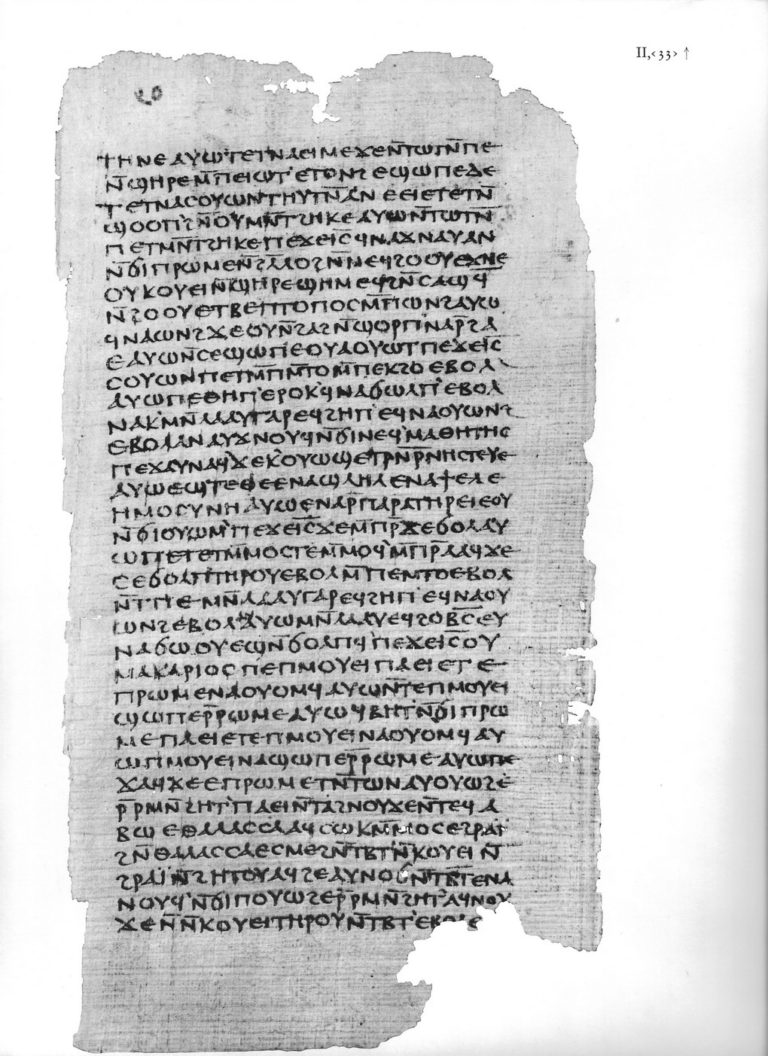 ⲧⲏⲛⲉⲁⲩⲱⲧⲉⲧⲛⲁⲉⲓⲙⲉϫⲉⲛ̄ⲧⲱⲧⲛ̄ⲡⲉ
ⲛ̄ϣⲏⲣⲉⲙ̄ⲡⲉⲓⲱⲧⲉⲧⲟⲛϩⲉϣⲱⲡⲉⲇⲉ
ⲧⲉⲧⲛⲁⲥⲟⲩⲱⲛⲧⲏⲩⲧⲛ̄ⲁⲛⲉⲉⲓⲉⲧⲉⲧⲛ̄
ϣⲟⲟⲡϩⲛ̄ⲟⲩⲙⲛ̄ⲧϩⲏⲕⲉⲁⲩⲱⲛ̄ⲧⲱⲧⲛ̄
ⲡⲉⲧⲙⲛ̄ⲧϩⲏⲕⲉⲡⲉϫⲉⲓ̅ⲥ̅ϥⲛⲁϫⲛⲁⲩⲁⲛ
ⲛ̄ϭⲓⲡⲣⲱⲙⲉⲛ̄ϩⲗ̄ⲗⲟϩⲛ̄ⲛⲉϥϩⲟⲟⲩⲉϫⲛⲉ
ⲟⲩⲕⲟⲩⲉⲓⲛ̄ϣⲏⲣⲉϣⲏⲙⲉϥϩⲛ̄ⲥⲁϣϥ̄
ⲛ̄ϩⲟⲟⲩⲉⲧⲃⲉⲡⲧⲟⲡⲟⲥⲙ̄ⲡⲱⲛϩⲁⲩⲱ
ϥⲛⲁⲱⲛϩϫⲉⲟⲩⲛ̄ϩⲁϩⲛ̄ϣⲟⲣⲡⲛⲁⲣ̄ϩⲁ
ⲉⲁⲩⲱⲛ̄ⲥⲉϣⲱⲡⲉⲟⲩⲁⲟⲩⲱⲧⲡⲉϫⲉⲓ̅ⲥ̅
ⲥⲟⲩⲱⲛⲡⲉⲧⲙ̄ⲡⲙ̄ⲧⲟⲙ̄ⲡⲉⲕϩⲟⲉⲃⲟⲗ
ⲁⲩⲱⲡⲉⲑⲏⲡⲉⲣⲟⲕϥⲛⲁϭⲱⲗⲡⲉⲃⲟⲗ
ⲛⲁⲕⲙⲛ̄ⲗⲁⲁⲩⲅⲁⲣⲉϥϩⲏⲡⲉϥⲛⲁⲟⲩⲱⲛϩ
ⲉⲃⲟⲗⲁⲛⲁⲩϫⲛⲟⲩϥⲛ̄ϭⲓⲛⲉϥⲙⲁⲑⲏⲧⲏⲥ
ⲡⲉϫⲁⲩⲛⲁϥϫⲉⲕⲟⲩⲱϣⲉⲧⲣⲛ̄ⲣ̄ⲛⲏⲥⲧⲉⲩⲉ
ⲁⲩⲱⲉϣⲧⲉⲑⲉⲉⲛⲁϣⲗⲏⲗⲉⲛⲁϯⲉⲗⲉ
ⲏⲙⲟⲥⲩⲛⲏⲁⲩⲱⲉⲛⲁⲣ̄ⲡⲁⲣⲁⲧⲏⲣⲉⲓⲉⲟⲩ
ⲛ̄ϭⲓⲟⲩⲱⲙⲡⲉϫⲉⲓ̅ⲥ̅ϫⲉⲙ̄ⲡⲣ̄ϫⲉϭⲟⲗⲁⲩ
ⲱⲡⲉⲧⲉⲧⲙ̄ⲙⲟⲥⲧⲉⲙ̄ⲙⲟϥⲙ̄ⲡⲣ̄ⲁⲁϥϫⲉ
ⲥⲉϭⲟⲗⲡⲧⲏⲣⲟⲩⲉⲃⲟⲗⲙ̄ⲡⲉⲙⲧⲟⲉⲃⲟⲗ
ⲛ̄ⲧⲡⲉⲙⲛ̄ⲗⲁⲁⲩⲅⲁⲣⲉϥϩⲏⲡⲉϥⲛⲁⲟⲩ
ⲱⲛϩⲉⲃⲟⲗⲁⲛⲁⲩⲱⲙⲛ̄ⲗⲁⲁⲩⲉϥϩⲟⲃ̄ⲥⲉⲩ
ⲛⲁϭⲱⲟⲩⲉϣⲛ̄ϭⲟⲗⲡϥⲡⲉϫⲉⲓ̅ⲥ̅ⲟⲩ
ⲙⲁⲕⲁⲣⲓⲟⲥⲡⲉⲡⲙⲟⲩⲉⲓⲡⲁⲉⲓⲉⲧⲉ
ⲡⲣⲱⲙⲉⲛⲁⲟⲩⲟⲙϥⲁⲩⲱⲛ̄ⲧⲉⲡⲙⲟⲩⲉⲓ
ϣⲱⲡⲉⲣ̄ⲣⲱⲙⲉⲁⲩⲱϥⲃⲏⲧⲛ̄ϭⲓⲡⲣⲱ
ⲙⲉⲡⲁⲉⲓⲉⲧⲉⲡⲙⲟⲩⲉⲓⲛⲁⲟⲩⲟⲙϥⲁⲩ
ⲱⲡⲙⲟⲩⲉⲓⲛⲁϣⲱⲡⲉⲣ̄ⲣⲱⲙⲉⲁⲩⲱⲡⲉ
ϫⲁϥϫⲉⲉⲡⲣⲱⲙⲉⲧⲛ̄ⲧⲱⲛⲁⲩⲟⲩⲱϩⲉ
ⲣ̄ⲣⲙⲛ̄ϩⲏⲧⲡⲁⲉⲓⲛ̄ⲧⲁϩⲛⲟⲩϫⲉⲛ̄ⲧⲉϥⲁ
ⲃⲱⲉⲑⲁⲗⲁⲥⲥⲁⲁϥⲥⲱⲕⲙ̄ⲙⲟⲥⲉϩⲣⲁⲓ̈
ϩⲛ̄ⲑⲁⲗⲁⲥⲥⲁⲉⲥⲙⲉϩⲛ̄ⲧⲃⲧⲛ̄ⲕⲟⲩⲉⲓⲛ̄
ϩⲣⲁⲓ̈ⲛ̄ϩⲏⲧⲟⲩⲁϥϩⲉⲁⲩⲛⲟϭⲛ̄ⲧⲃ̄ⲧⲉⲛⲁ
ⲛⲟⲩϥⲛ̄ϭⲓⲡⲟⲩⲱϩⲉⲣ̄ⲣⲙⲛ̄ϩⲏⲧⲁϥⲛⲟⲩ
ϫⲉⲛ̄ⲛ̄ⲕⲟⲩⲉⲓⲧⲏⲣⲟⲩⲛ̄ⲧⲃⲧⲉⲃⲟⲗⲉ
II,‹33› ↑